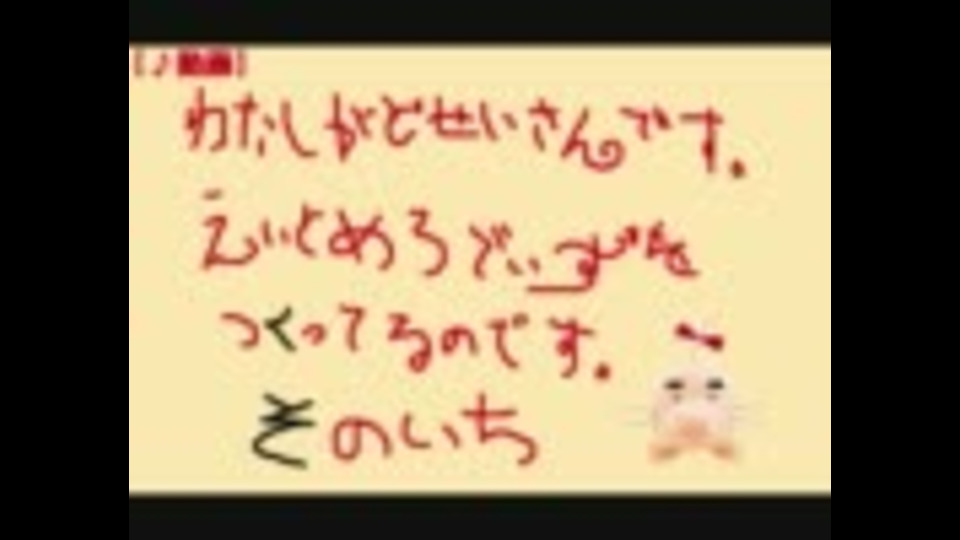 [♪動画]
わたしがどせいさんです。
えいとめろでぃーずを
つくってるのです。
そのいち